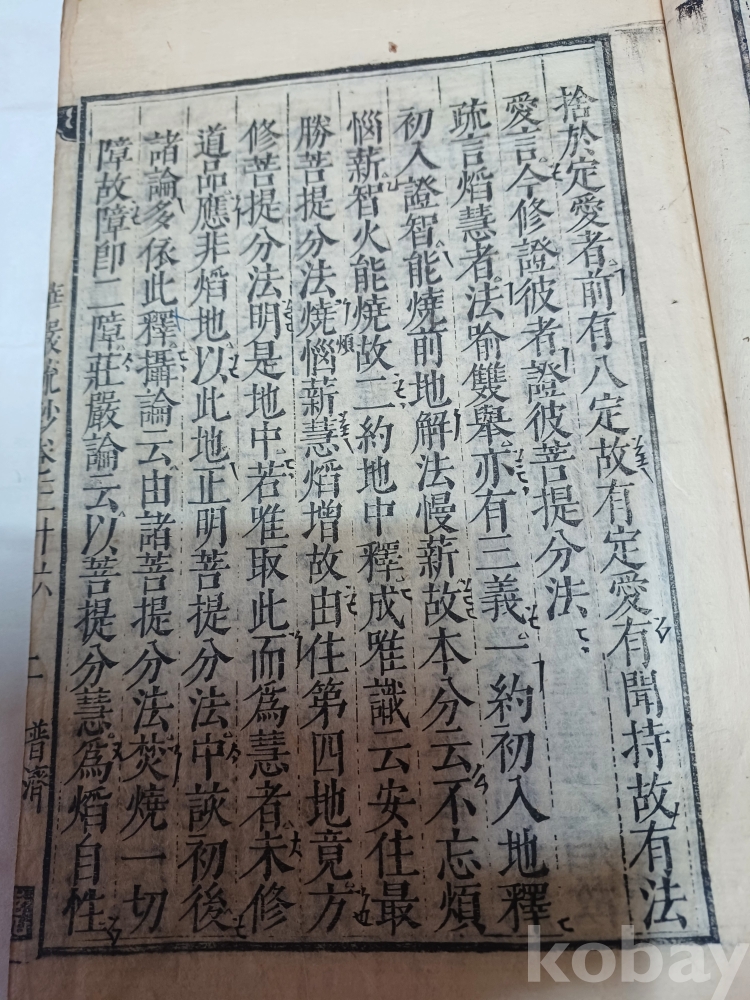 捨於定愛者前有八定故有定愛有聞持故有法
愛言今修證彼者證彼菩提分法
疏言熖慧者法喻雙舉亦有三義一約初入地釋
初入證智能燒前地解法慢薪故本分云不忘煩
惱薪智火能燒故二約地中釋成唯識云安住最
勝菩提分法燒惱薪慧熖增故由住第四地竟方
煩
修菩提分法明是地中若唯取此而為慧者未修
道品應非熖地以此地正明菩提分法中該初後
諸論多依此釋攝論云由諸菩提分法焚燒一切
障故障即二障莊嚴論云以菩提分慧為熖自性
華嚴疏鈔卷三十六 二 普濟
kobay